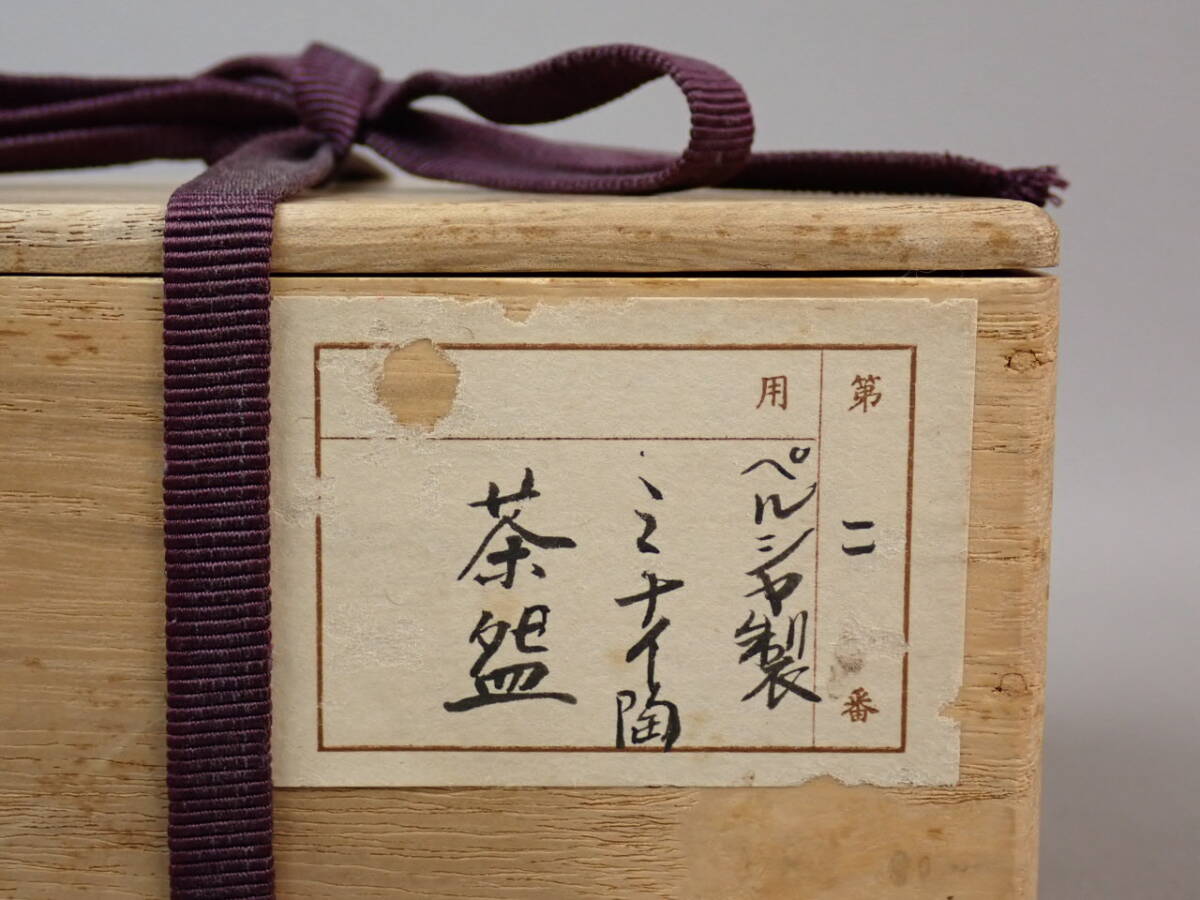 第二番
用
ペルシヤ製
ミナイ陶
茶盌